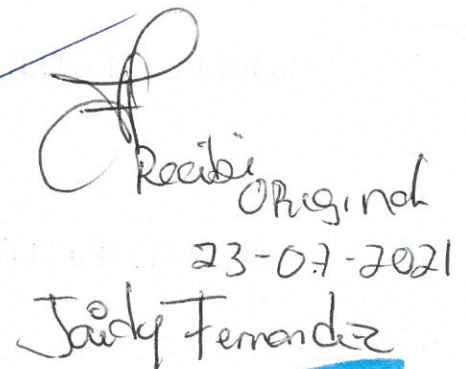 Recibi
ORiginal
23-07-2021
Jaidy Fernandez